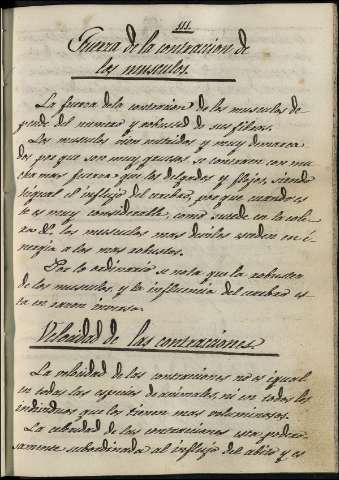 111.
Fuerza de la contracion de
los musculos.
La fuerza de la contracion de los musculos de-
pende del numero y robustéd de sus fibras.
Los musculos bien nutridos y muy demarca-
dos, por que son muy gruesos, se contraen con mu-
cha mas fuerza que los delgados y flojos, siendo
igual el influjo del cerebro, por que cuando es-
te es muy considerable, como sucede en la cole-
ra &. los musculos mas deviles eceden en é-
nergia a los mas robustos.
Por lo ordinario se nota que la robustez
de los musculos y la influencia del cerebro es-
ta en razon inversa.
Velocidad de las contracciones.
La velocidad de las contracciones no es igual
en todas las especies de animales, ni en todos los
individuos que los tienen mas voluminosos.
La celeridad de las contracciones esta podero-
samente subordinada al influjo del abito y es